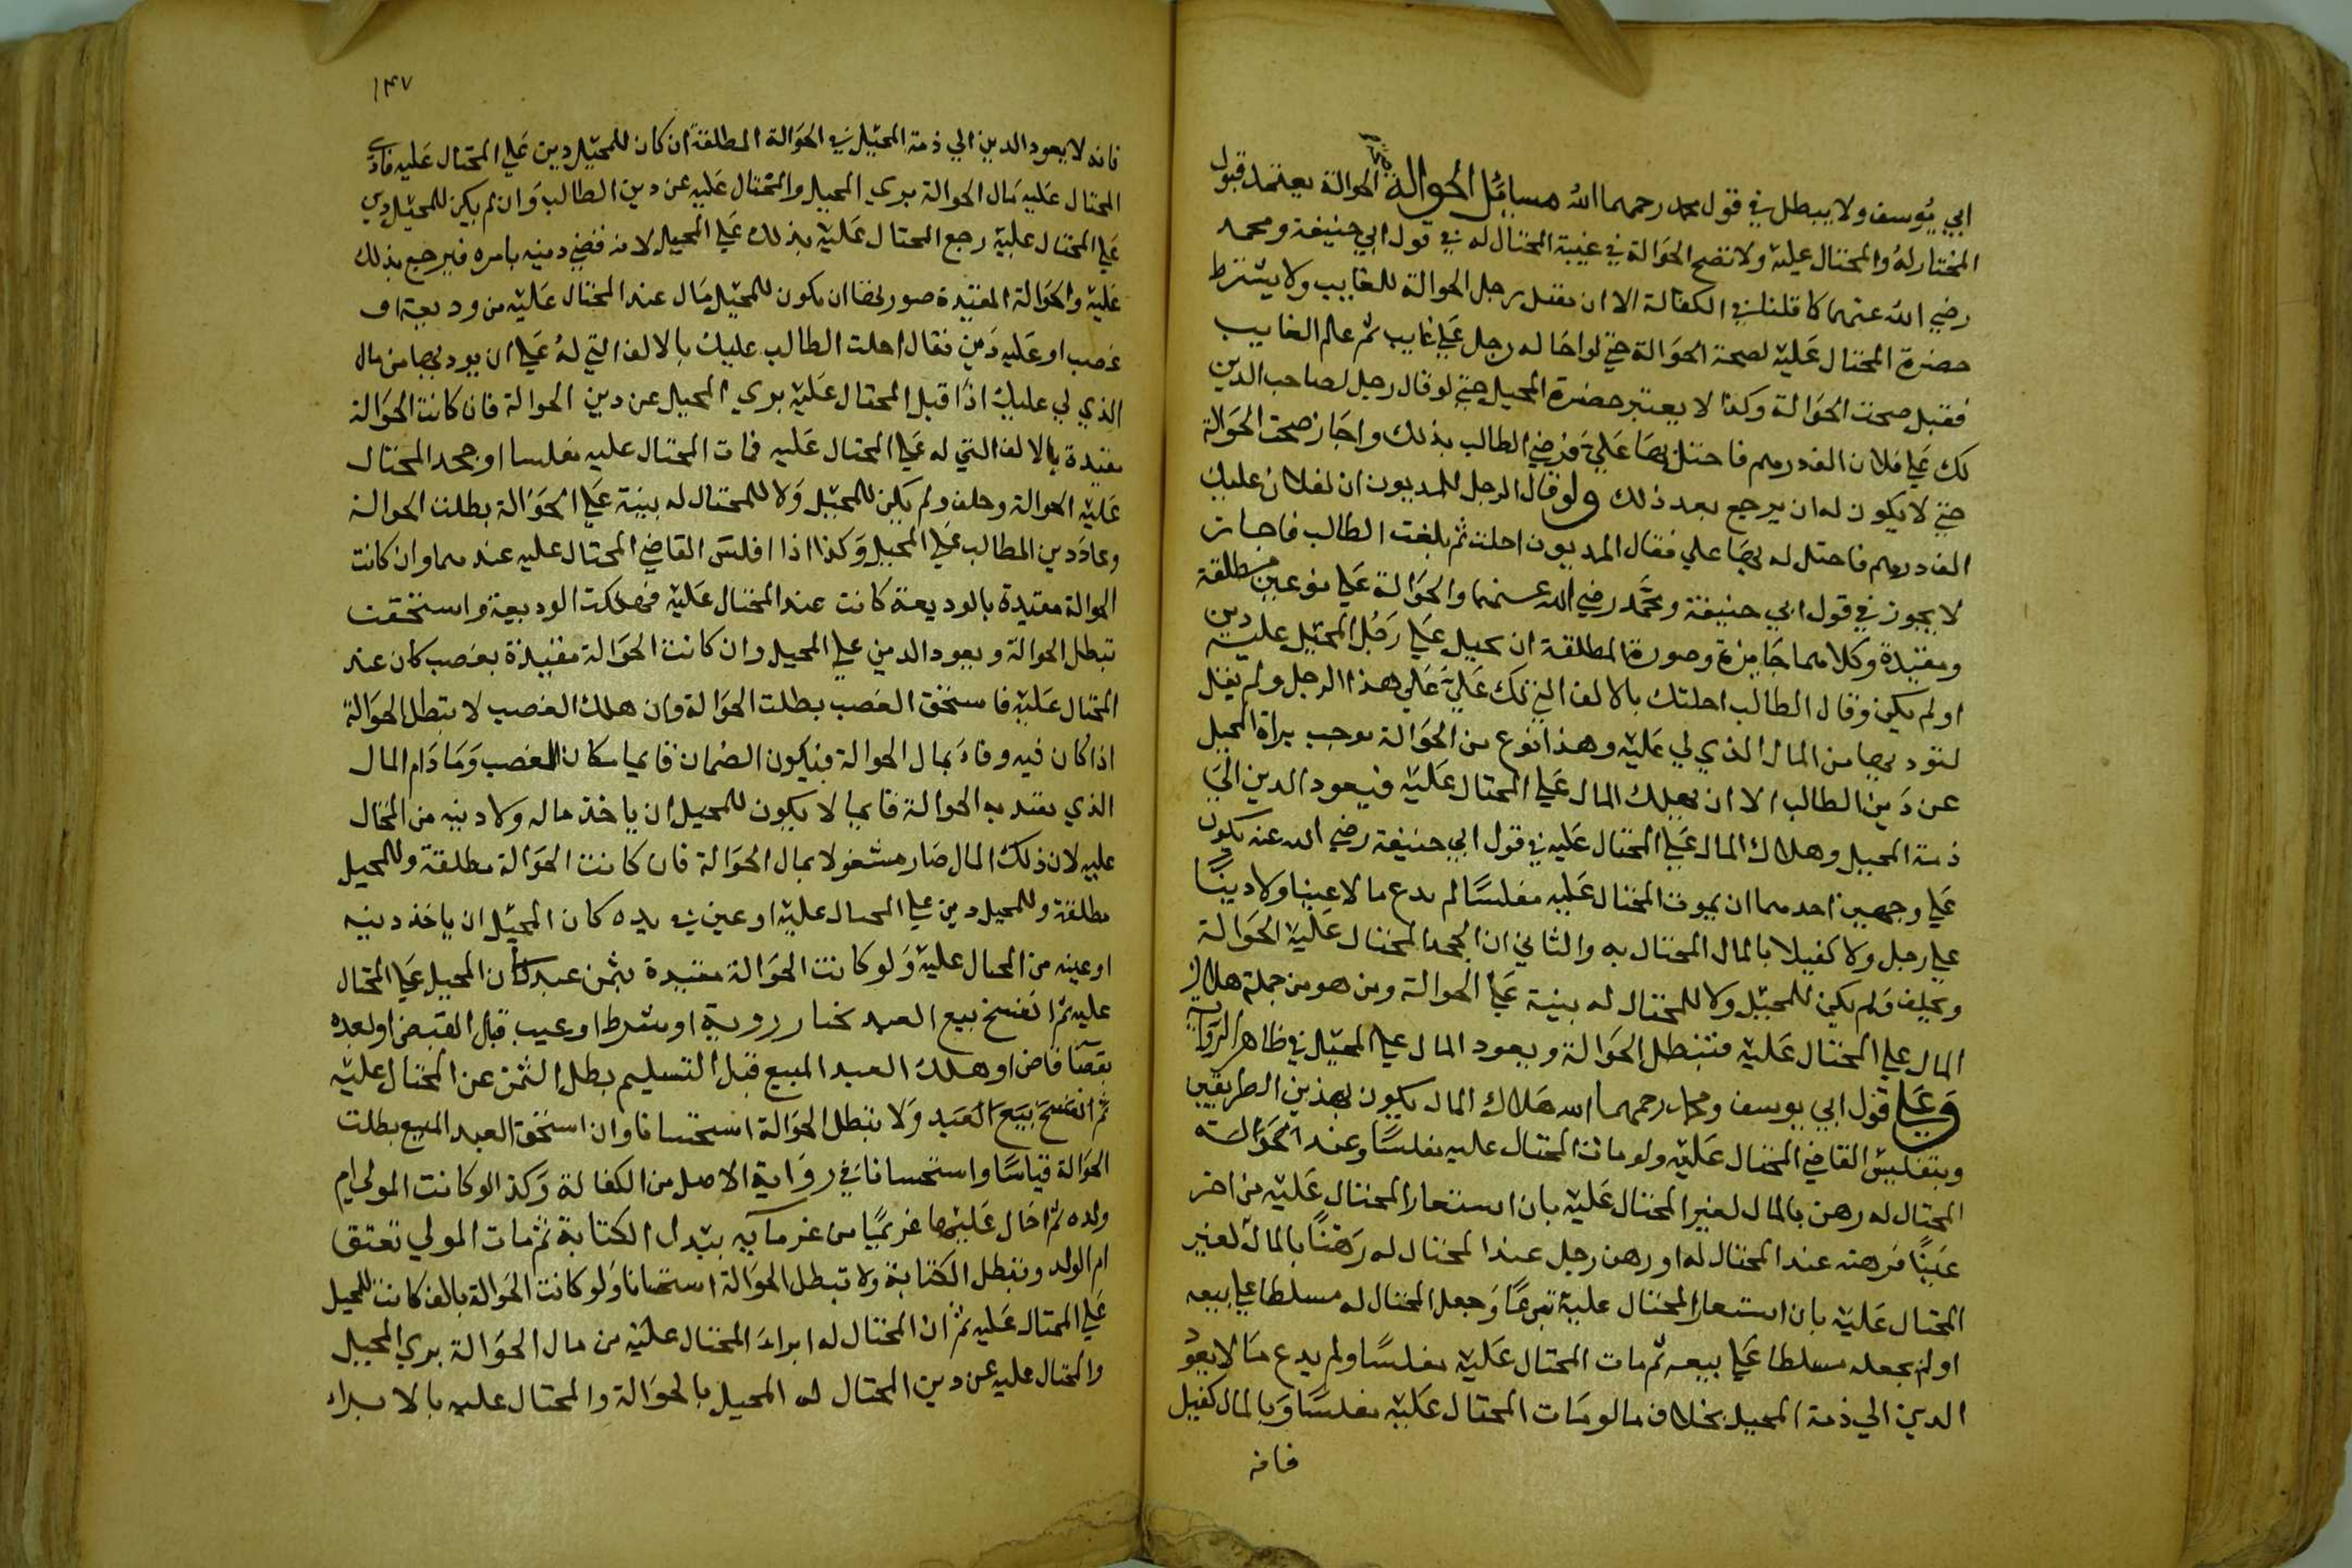 ابي يوسف ولا يبطل في قول محمد رحمهما الله مسايل الحوالة الحوالة يعتمد قبول
المحتال له والمحتال عليه ولا تصح الحوالة في غيبة المحتال له في قول ابي حنيفة ومحمد
رضي الله عنهما كما قلنا في الكفالة الا ان يقبل رجل الحوالة للغايب ولا يشترط
حضرة المحتال عليه لصحة الحوالة حتي لو احاله رجل علي غايب ثم علم الغايب
فقبل صحت الحوالة وكذا لا يعتبر حضرة المحيل حتي لو قال رجل لصاحب الدين
لك علي فلان الف درهم فاحتل بها علي فرضي الطالب بذلك واجاز صحت الحوالة
حتي لا يكون له ان يرجع بعد ذلك ولو قال الرجل للمديون ان لفلان عليك
الف درهم فاحتل له بها علي فقال المديون احلت ثم بلغت الطالب فاجاز
لا يجوز في قول ابي حنيفة ومحمد رضي الله عنهما والحوالة علي نوعين مطلقة
ومقيدة وكلاهما جايزة وصورة المطلقة ان يحيل علي رجل للمحيل عليه دين
او لم يكن وقال الطالب احلتك بالالف التي لك علي علي هذا الرجل ولم يقل
لتودي بها من المال الذي لي عليه وهذا نوع من الحوالة يوجب براة المحيل
عن دين الطالب الا ان يهلك المال علي المحتال عليه فيعود الدين الي
ذمة المحيل وهلاك المال علي المحتال عليه في قول ابي حنيفة رضي الله عنه يكون
علي وجهين احدهما ان يموت المحتال عليه مفلسا لم يدع مالا عينا ولا دينا
علي رجل ولا كفيلا بالمال المحتال به والثاني ان يجحد المحتال عليه الحوالة
ويحلف ولم يكن للمحيل ولا للمحتال له بينة علي الحوالة ومن هو من جملة هلاك
المال علي المحتال عليه فتبطل الحوالة ويعود المال علي المحيل في ظاهر الرواية
وعلي قول ابي يوسف ومحمد رحمهما الله هلاك المال يكون بهذين الطريقين
وبتفليس القاضي المحتال عليه ولو مات المحتال عليه مفلسا وعند الحوالة
المحتال له رهن بالمال لغير المحتال عليه بان استعار المحتال عليه من اخر
عينا فرهنه عند المحتال له او رهن رجل عند المحتال له رهنا بالمال لغير
المحتال عليه بان استعار المحتال عليه تبرعا وجعل المحتال له مسلطا علي بيعه
او لم يجعله مسلطا علي بيعه ثم مات المحتال عليه مفلسا ولم يدع مالا يعود
الدين الي ذمة المحيل بخلاف ما لو مات المحتال عليه مفلسا وبالمال كفيل
فانه
١٤٧
فانه لا يعود الدين الي ذمة المحيل في الحوالة المطلقة ان كان للمحيل دين علي المحتال عليه فادي
المحتال عليه مال الحوالة بري المحيل والمحتال عليه عن دين الطالب وان لم يكن للمحيل دين
علي المحتال عليه رجع المحتال عليه بذلك علي المحيل لانه قضي دينه بامره فيرجع بذلك
عليه والحوالة المقيدة صورتها ان يكون للمحيل مال عند المحتال عليه من وديعة او
غصب او عليه دين فقال احلت الطالب عليك بالالف التي له علي ان يودي بها من مال
الذي لي عليك اذا قبل المحتال عليه بري المحيل عن دين الحوالة فان كانت الحوالة
مقيدة بالالف التي له علي المحتال عليه فمات المحتال عليه مفلسا او جحد المحتال
عليه الحوالة وحلف ولم يكن للمحيل ولا للمحتال له بينة علي الحوالة بطلت الحوالة
وعاد دين المطالب علي المحيل وكذا اذا افلس القاضي المحتال عليه عندهما وان كانت
الحوالة مقيدة بالوديعة كانت عند المحتال عليه فهلكت الوديعة واستحقت
تبطل الحوالة ويعود الدين علي المحيل وان كانت الحوالة مقيدة بغصب كان عند
المحتال عليه فاستحق الغصب بطلت الحوالة وان هلك الغصب لا تبطل الحوالة
اذا كان فيه وفاء بمال الحوالة فيكون الضمان قايما مكان الغصب وما دام المال
الذي تقيد به الحوالة قايما لا يكون للمحيل ان ياخذ ماله ولا دينه من المحتال
عليه لان ذلك المال صار مشغولا بمال الحوالة فان كانت الحوالة مطلقة وللمحيل
مطلقة وللمحيل دين علي المحتال عليه او عين في يده كان المحيل ان ياخذ دينه
او عينه من المحتال عليه ولو كانت الحوالة مقيدة بثمن عبد كان المحيل علي المحتال
عليه ثم انفسخ بيع العبد بخيار روية او شرط او عيب قبل القبض او بعده
بقضا قاض او هلك العبد المبيع قبل التسليم بطل الثمن عن المحتال عليه
ثم انفسخ بيع العبد ولا تبطل الحوالة استحسانا وان استحق العبد المبيع بطلت
الحوالة قياسا واستحسانا في رواية الاصل من الكفالة وكذا لو كاتب المولي ام
ولده ثم احال عليها غريما من غرمايه ببدل الكتابة ثم مات المولي تعتق
ام الولد وتبطل الكتابة ولا تبطل الحوالة استحسانا ولو كانت الحوالة بالف كانت للمحيل
علي المحتال عليه ثم ان المحتال له ابراء المحتال عليه من مال الحوالة بري المحيل
والمحتال عليه عن دين المحتال له المحيل بالحوالة والمحتال عليه بالابراء